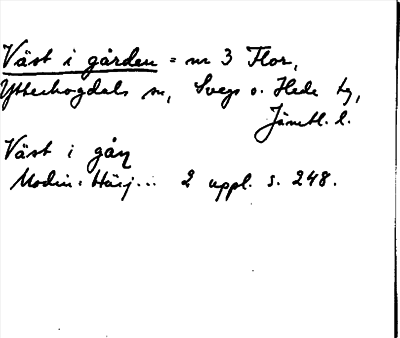 Väst i gården = nr 3 Flor,
Ytterhogdals sn, Svegs o. Hede tg,
Jämtl. l.
Väst i gåɳ
Modin: Härj... 2 uppl. s. 248.